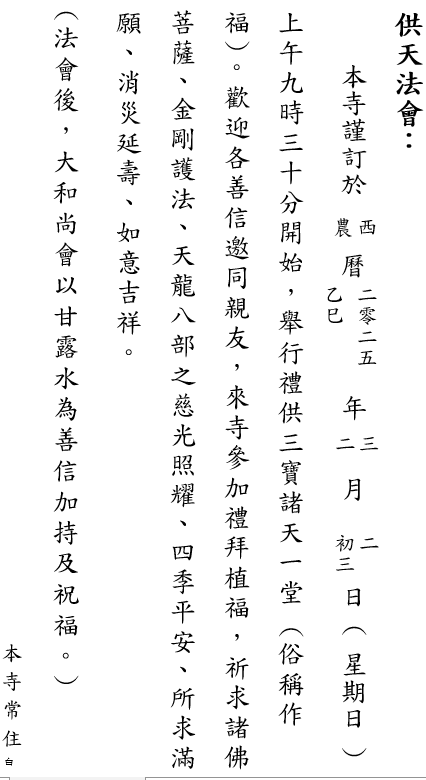 供天法會：
本寺謹訂於西農曆二零二五乙巳年三二月二初三日（星期日）
上午九時三十分開始，舉行禮供三寶諸天一堂（俗稱作
福）。歡迎各善信邀同親友，來寺參加禮拜植福，祈求諸佛
菩薩、金剛護法、天龍八部之慈光照耀、四季平安、所求滿
願、消災延壽、如意吉祥。
（法會後，大和尚會以甘露水為善信加持及祝福。）
本寺常住白